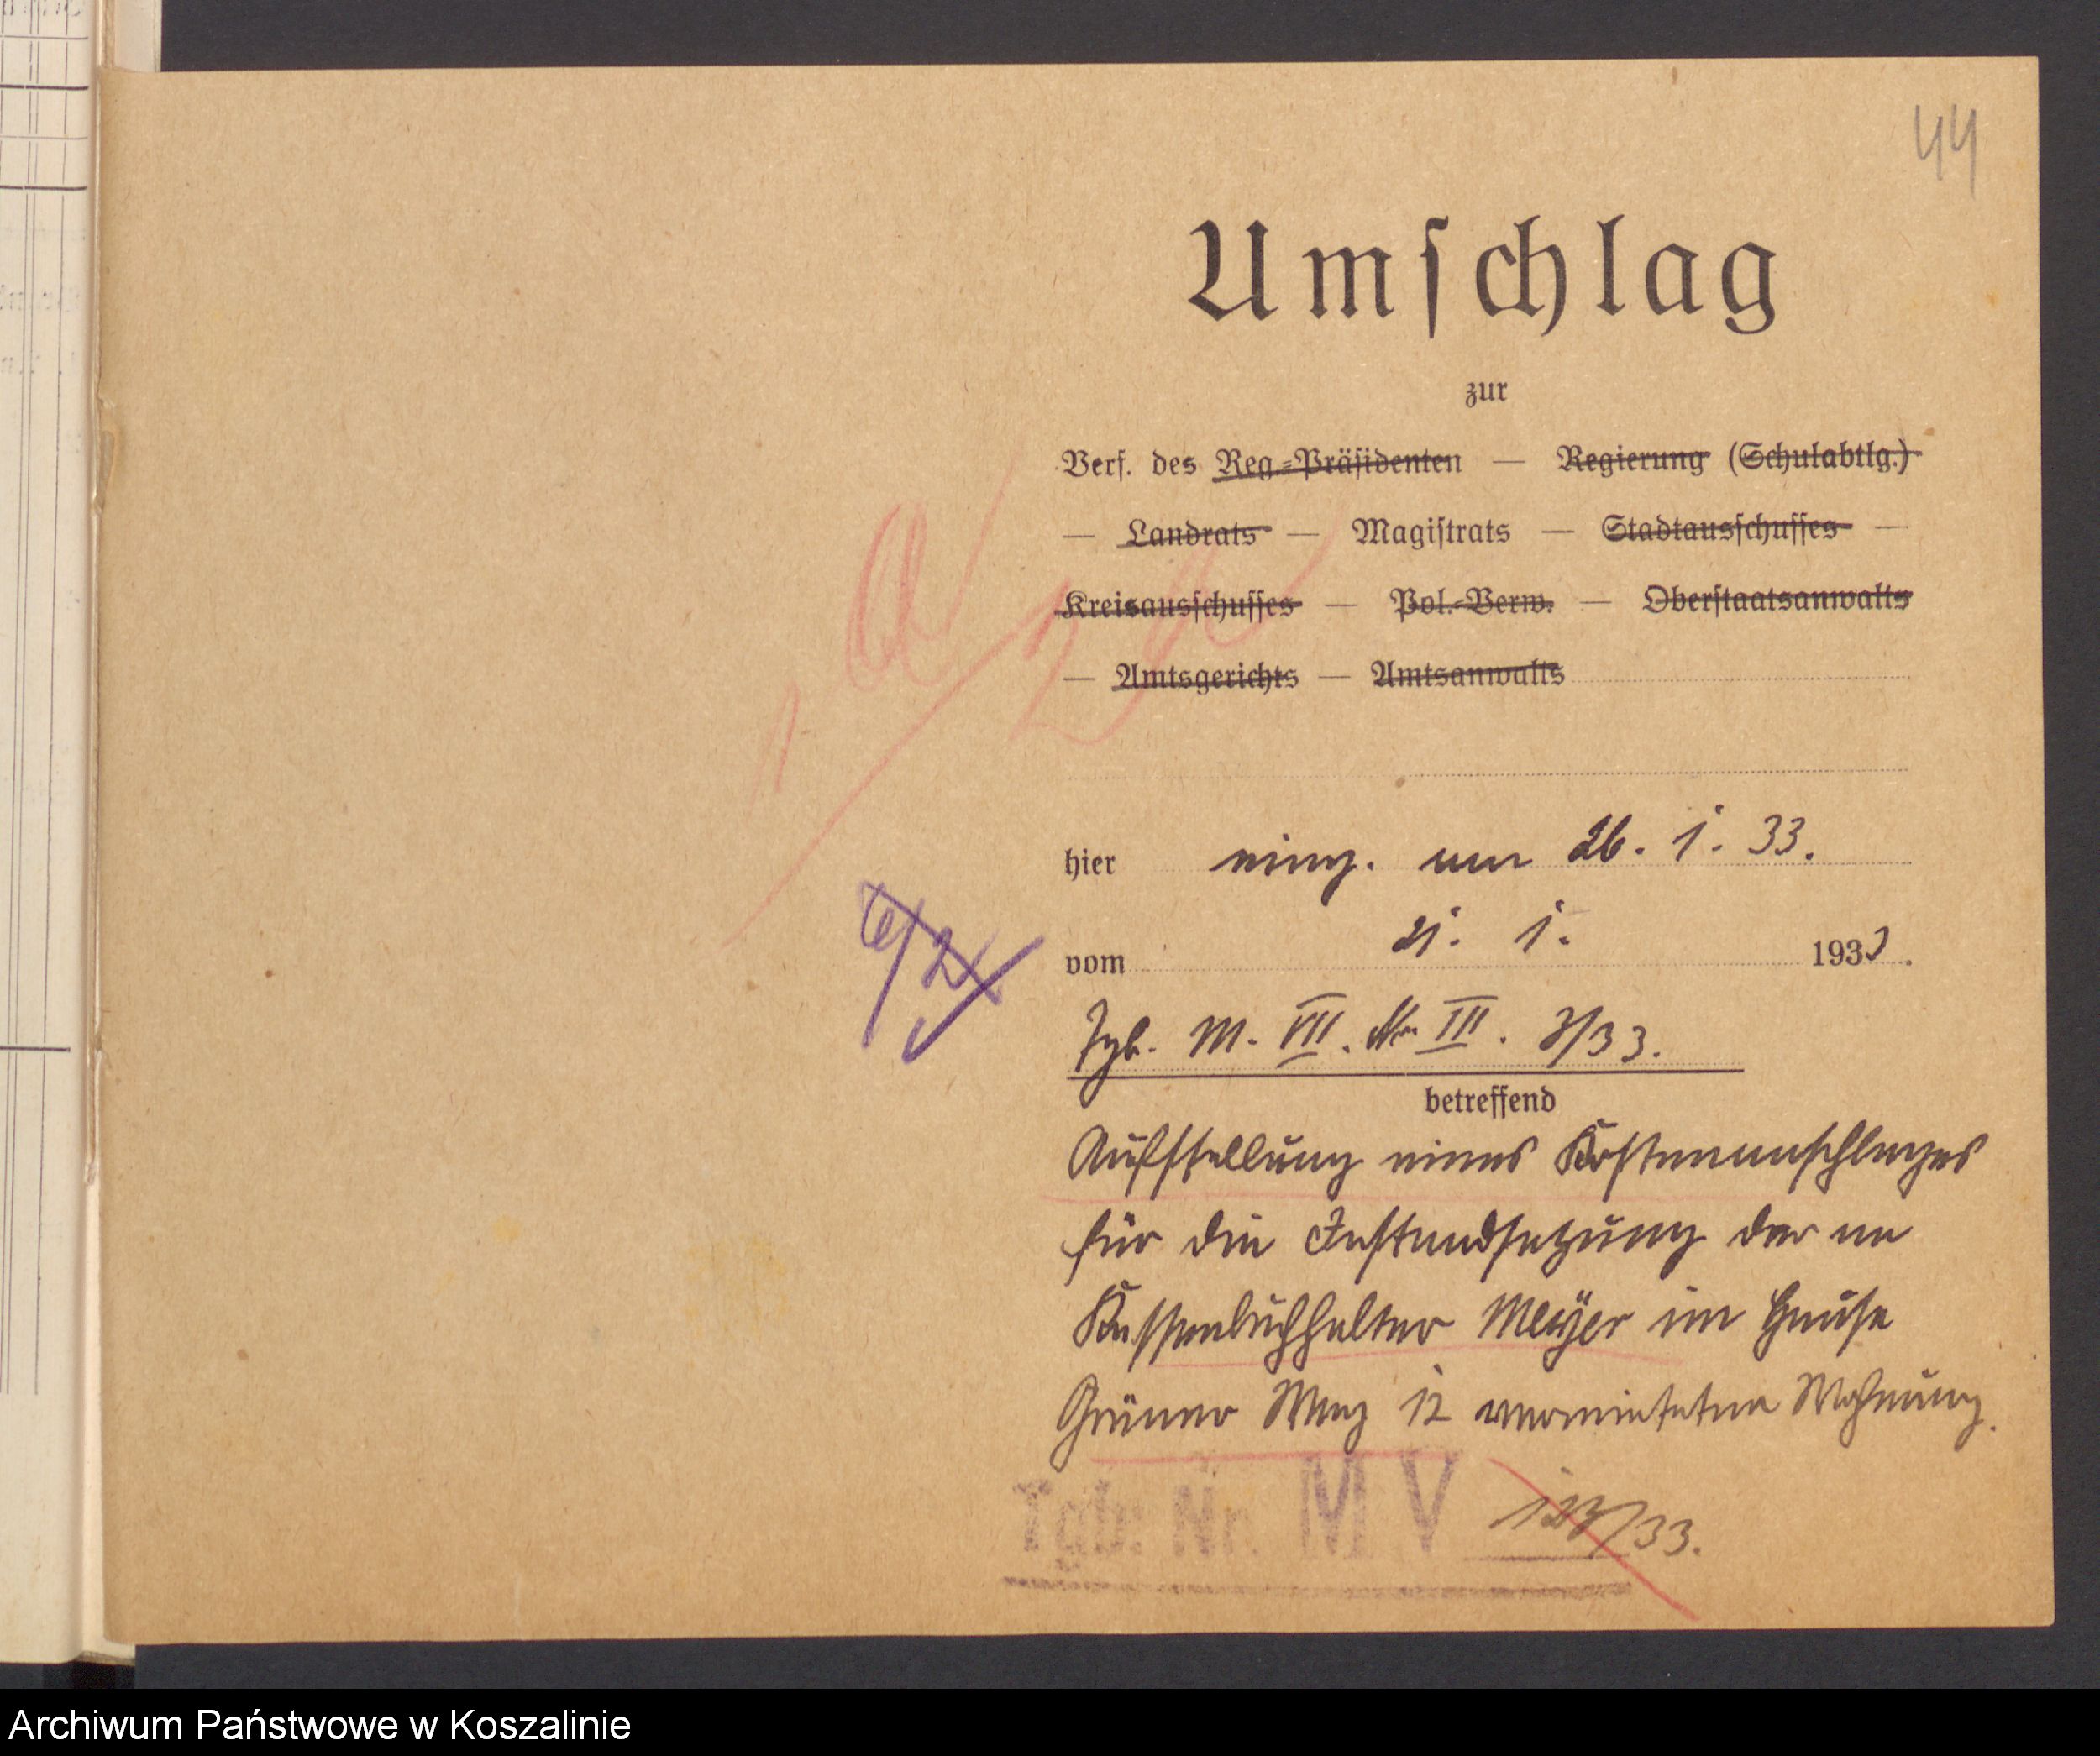 44
Umſchlag
zur
Verf. des Reg.-Präſidenten — Regierung (Schulabtlg.)
— Landrats — Magiſtrats — Stadtausſchuſſes —
Kreisausſchuſſes — Pol.-Verw. — Oberſtaatsanwalts
— Amtsgerichts — Amtsanwalts
hier eing. am 26. 1. 33.
6/2
vom 21. 1. 1933.
Tgb. M. VII. Nr III. 3/33.
betreffend
Aufstellung eines Kostenanschlages
für die Instandsetzung der an
Kassenbuchhalter Meÿer im Hause
Grüner Weg 12 vermieteten Wohnung.
Tgb. Nr. M V /33.
Archiwum Państwowe w Koszalinie